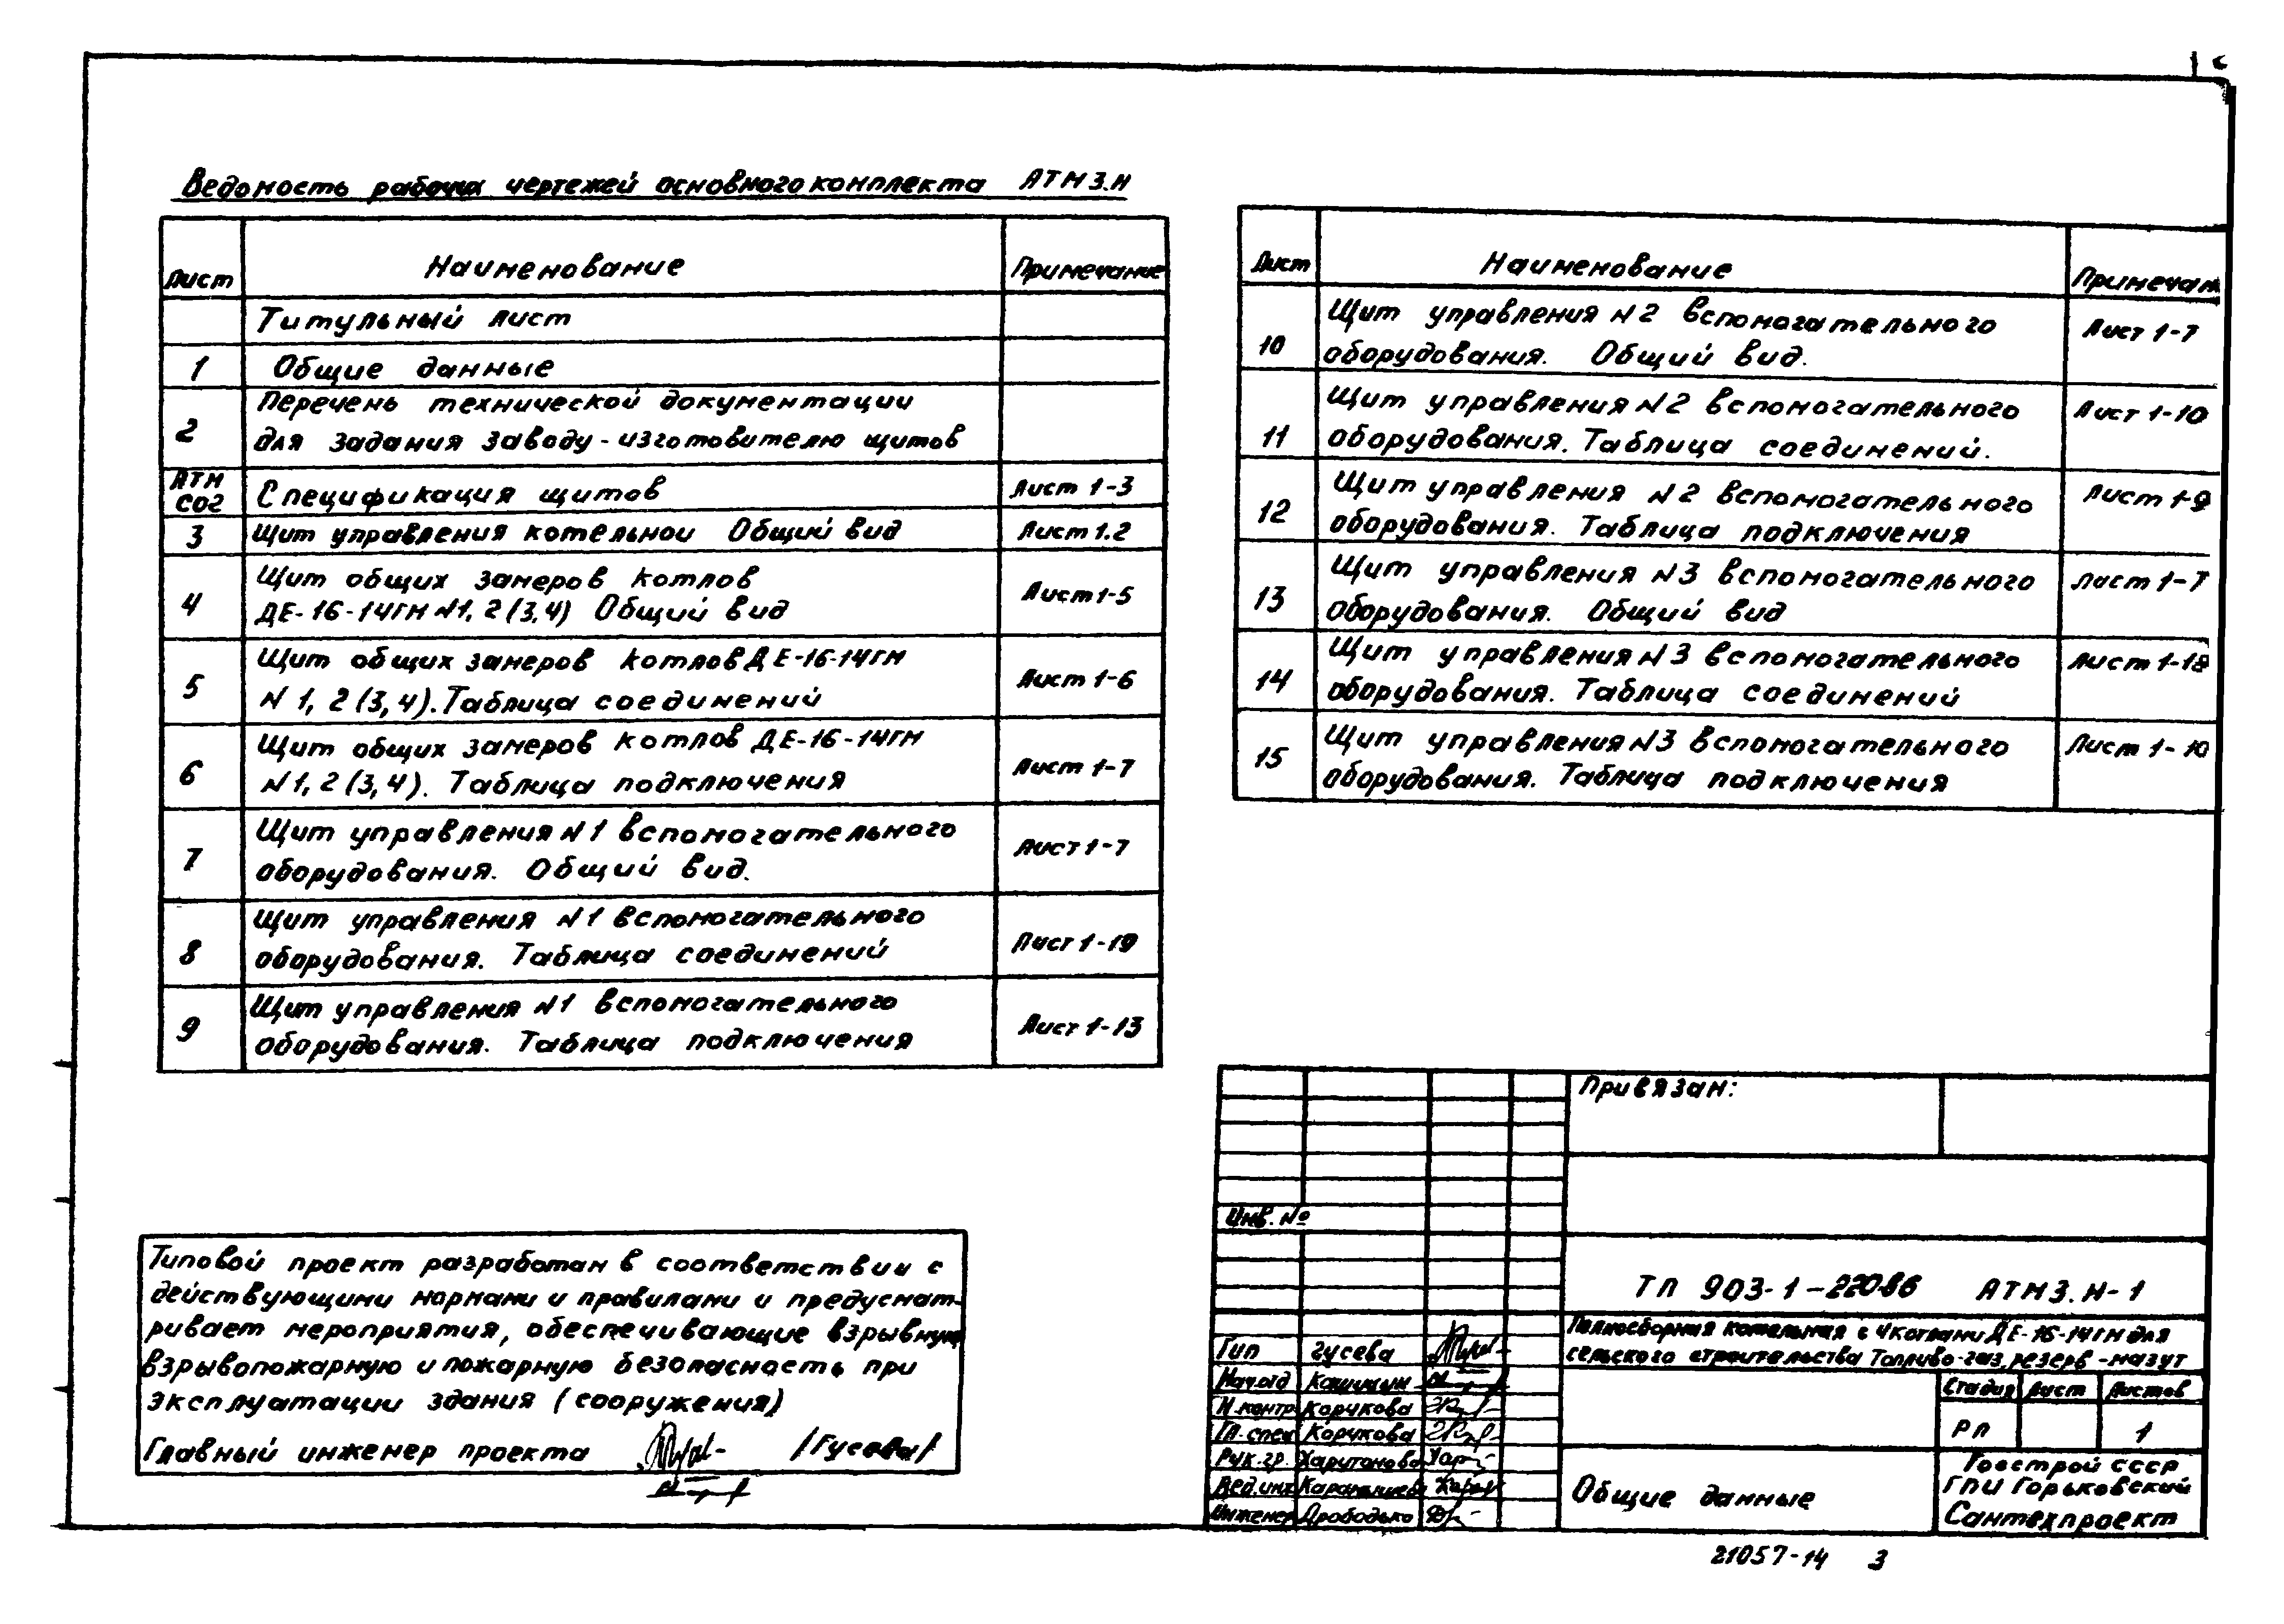 Ведомость рабочих чертежей основного комплекта АТМ3.Н
Лист Наименование Примечание
Титульный лист
1 Общие данные
2 Перечень технической документации
для задания заводу-изготовителю щитов
АТМ СО2 Спецификация щитов Лист 1-3
3 Щит управления котельной Общий вид Лист 1.2
4 Щит общих замеров котлов
ДЕ-16-14ГМ N1, 2 (3,4) Общий вид Лист 1-5
5 Щит общих замеров котлов ДЕ-16-14ГМ
N 1, 2 (3,4). Таблица соединений Лист 1-6
6 Щит общих замеров котлов ДЕ-16-14ГМ
N1, 2 (3,4). Таблица подключения Лист 1-7
7 Щит управления N1 вспомогательного
оборудования. Общий вид. Лист 1-7
8 Щит управления N1 вспомогательного
оборудования. Таблица соединений Лист 1-19
9 Щит управления N1 вспомогательного
оборудования. Таблица подключения Лист 1-13
Лист Наименование Примечан
10 Щит управления N2 вспомогательного
оборудования. Общий вид. Лист 1-7
11 Щит управления N2 вспомогательного
оборудования. Таблица соединений. Лист 1-10
12 Щит управления N2 вспомогательного
оборудования. Таблица подключения Лист 1-9
13 Щит управления N3 вспомогательного
оборудования. Общий вид Лист 1-7
14 Щит управления N3 вспомогательного
оборудования. Таблица соединений Лист 1-18
15 Щит управления N3 вспомогательного
оборудования. Таблица подключения Лист 1-10
Типовой проект разработан в соответствии с
действующими нормами и правилами и предусмат-
ривает мероприятия, обеспечивающие взрывную
взрывопожарную и пожарную безопасность при
эксплуатации здания (сооружения)
Главный инженер проекта /Гусева/
Привязан:
Инв. №
ТП 903-1-220.86 АТМ3.Н-1
Полносборная котельная с 4 котлами ДЕ-16-14ГМ для
сельского строительства Топливо-газ, резерв-мазут
Гип Гусева
Нач.отд
Н.контр Корчкова
Гл.спец Корчкова
Рук.гр. Харитонова
Вед.инж
Инженер Дрободько
Стадия Лист Листов
РП 1
Общие данные
Госстрой СССР
ГПИ Горьковский
Сантехпроект
21057-14 3